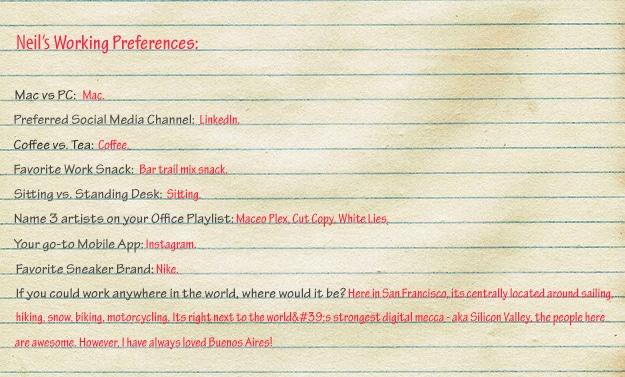 Neil's Working Preferences:
Mac vs PC: Mac.
Preferred Social Media Channel: LinkedIn.
Coffee vs. Tea: Coffee.
Favorite Work Snack: Bar trail mix snack.
Sitting vs. Standing Desk: Sitting.
Name 3 artists on your Office Playlist: Maceo Plex, Cut Copy, White Lies.
Your go-to Mobile App: Instagram.
Favorite Sneaker Brand: Nike.
If you could work anywhere in the world, where would it be? Here in San Francisco, its centrally located around sailing,
hiking, snow, biking, motorcycling. Its right next to the world&#39;s strongest digital mecca - aka Silicon Valley, the people here
are awesome. However, I have always loved Buenos Aires!